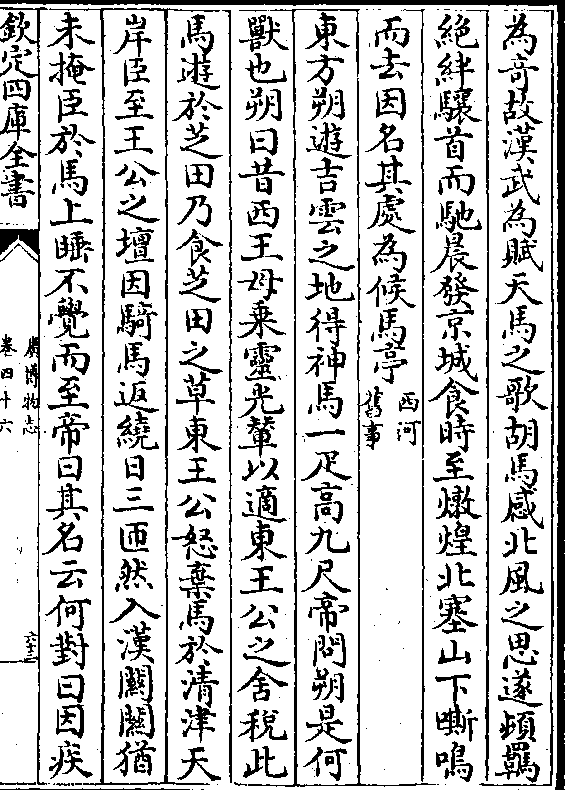 為奇故漢武為賦天馬之歌胡馬感北風之思遂頓羈
絶絆驤首而馳晨發京城食時至燉煌北塞山下嘶鳴
而去因名其處為候馬亭西河舊事
東方朔遊吉雲之地得神馬一疋高九尺帝問朔是何
獸也朔曰昔西王母乗靈光輦以適東王公之舍税此
馬遊於芝田乃食芝田之草東王公怒棄馬於清津天
岸臣至王公之壇因騎馬返繞日三匝然入漢關關猶
未掩臣於馬上睡不覺而至帝曰其名云何對曰因疾
欽定四庫全書
廣博物志
卷四十六
六十三